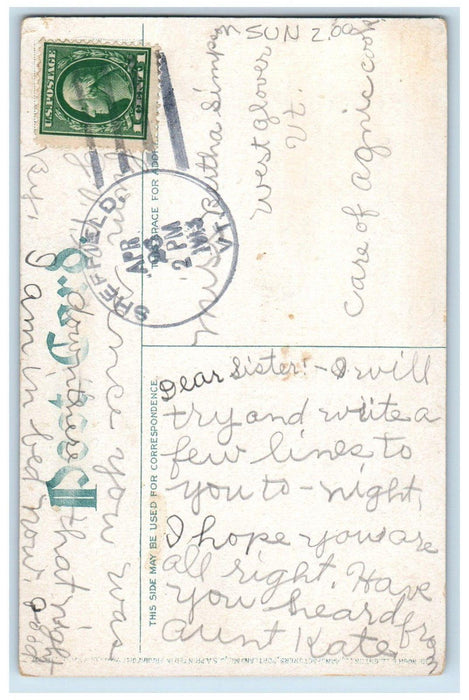 SUN 2.00
Miss Bertha Simpson
West glover
Vt.
Care of Agnie cook
U.S. POSTAGE
1 CENT 1
SHEFFIELD, VT.
APR
2 PM
1913
Post Card
THIS SPACE FOR ADD
THIS SIDE MAY BE USED FOR CORRESPONDENCE.
Dear Sister:- I will
try and write a
few lines to
you to-night.
I hope you are
all right. Have
you heard from
Aunt Kate
since you was
down there
that night
I am in bed now. good
By.